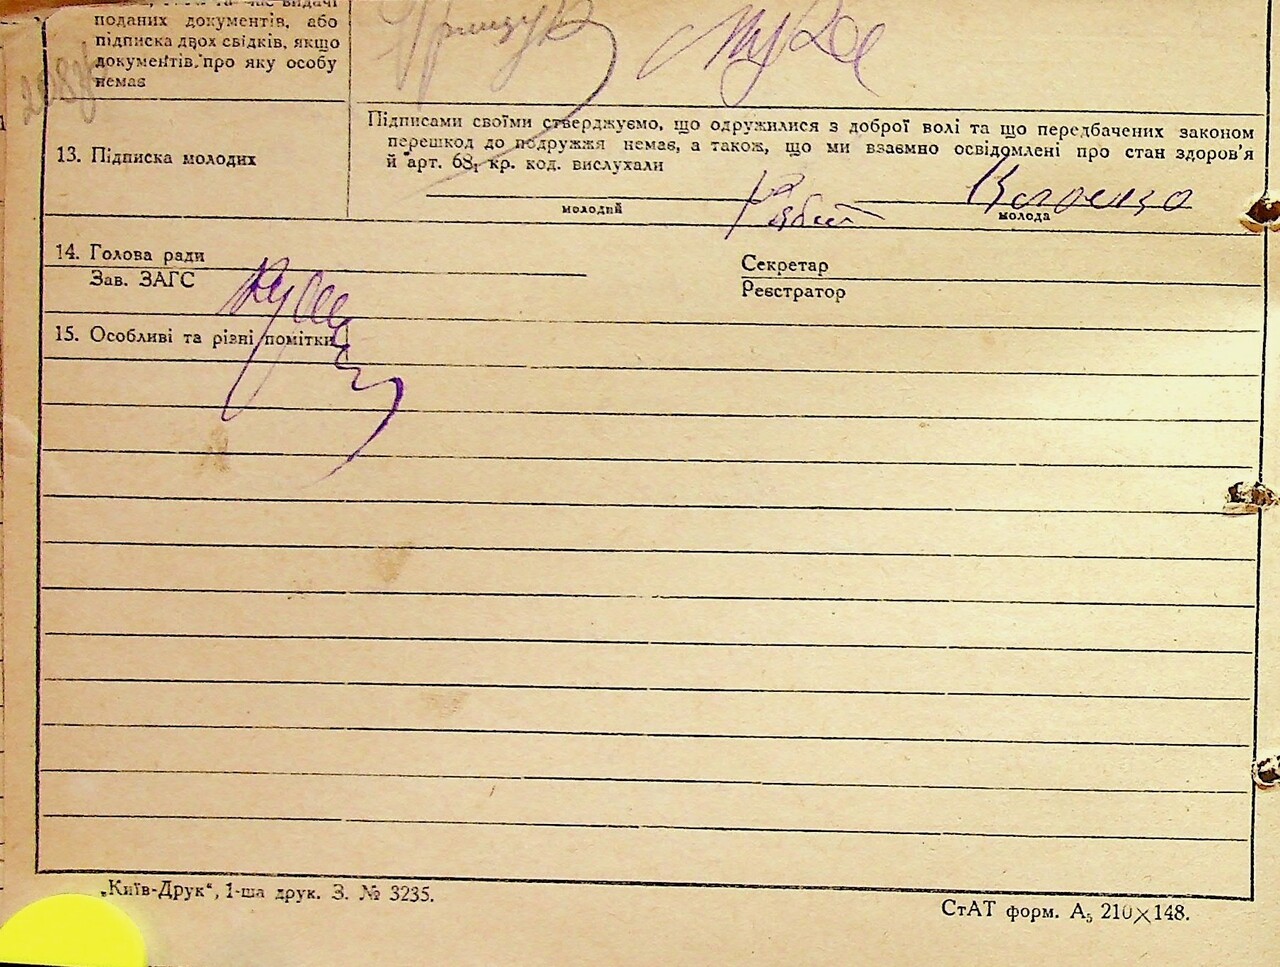 поданих документів, або
підписка двох свідків, якщо
документів, про яку особу
немає
13. Підписка молодих
Підписами своїми стверджуємо, що одружилися з доброї волі та що передбачених законом
перешкод до подружжя немає, а також, що ми взаємно освідомлені про стан здоров'я
й арт. 68, кр. код. вислухали
молодий
молода
14. Голова ради
Зав. ЗАГС
Секретар
Реєстратор
15. Особливі та різні помітки
„Київ-Друк“, 1-ша друк. З. № 3235.
СтАТ форм. А₅ 210×148.